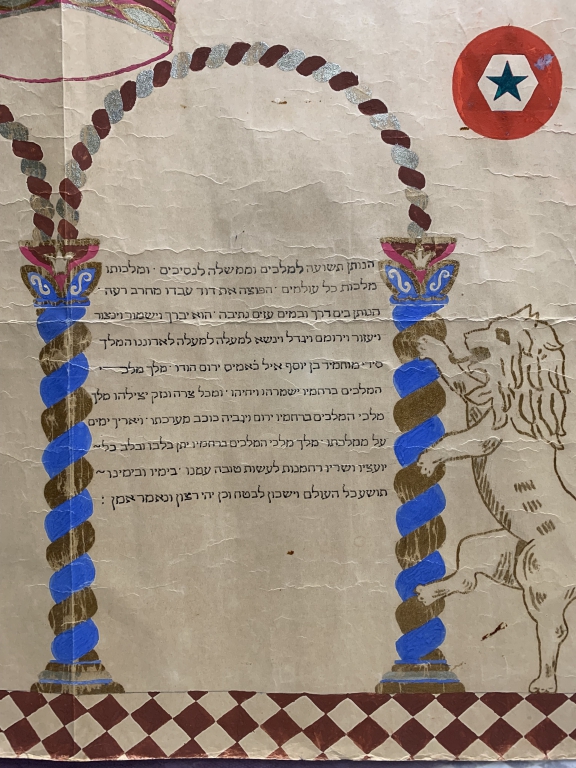 הנותן תשועה למלכים וממשלה לנסיכים · ומלכותו
מלכות כל עולמים · הפוצה את דוד עבדו מחרב רעה ·
הנותן בים דרך ובמים עזים נתיבה · הוא יברך וישמור וינצור
ויעזור וירומם ויגדל וינשא למעלה למעלה לאדוננו המלך
סידי מוחמיד בן יוסף אי״ל כ׳אמיס ירום הודו · מלך מלכי
המלכים ברחמיו ישמרהו ויחיהו · ומכל צרה ונזק יצילהו מלך
מלכי המלכים ברחמיו ירום ויגביה כוכב מערכתו · ויאריך ימים
על ממלכתו · מלך מלכי המלכים ברחמיו יתן בלבו ובלב כל ~
יועציו ושריו רחמנות לעשות טובה עמנו · בימיו ובימינו ~
תושע כל העולם וישכון לבטח וכן יהי רצון ונאמר אמן :